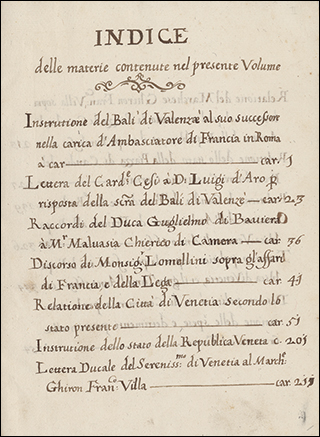 INDICE
delle materie contenute nel presente Volume
Instrutione del Balì di Valenzè al suo successore
nella carica d'Ambasciatore di Francia in Roma
à car car. 1
Lettera del Card.e Cesi à D. Luigi d'Aro p
risposta della scra del Balì di Valenzè car. 23
Raccordi del Duca Guglielmo di Baviera
à Mr. Maluasia Chierico di Camera car. 36
Discorso di Monsigr. Lomellini sopra gl'affari
di Francia e della Lega car. 41
Relatione della Città di Venetia Secondo lo
stato presente car. 51
Instrutione dello stato della Republica Veneta c. 201
Lettera Ducale del Sereniss.mo di Venetia al March.e
Ghiron Fran.co Villa car.